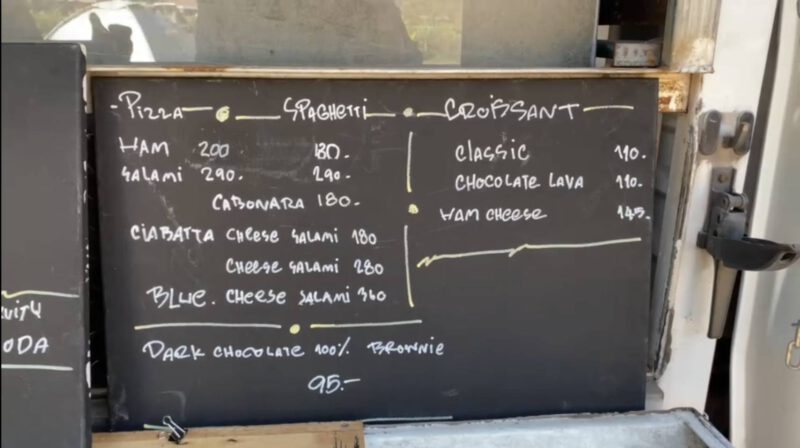 -Pizza
Spaghetti
Ham 200 180.-
Salami 290.- 290.-
Cabonara 180.-
Ciabatta Cheese Salami 180
Cheese Salami 280
Blue. Cheese Salami 360
Dark Chocolate 100% Brownie
95.-
Croissant
Classic 110.-
Chocolate Lava 110.-
Ham Cheese 145.-
ODA